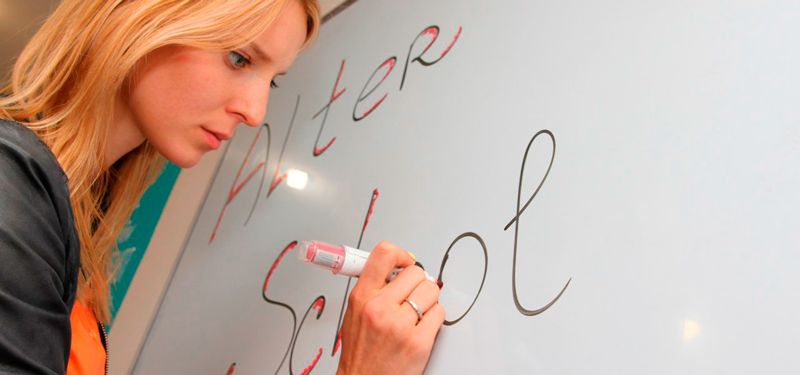 Alter
School